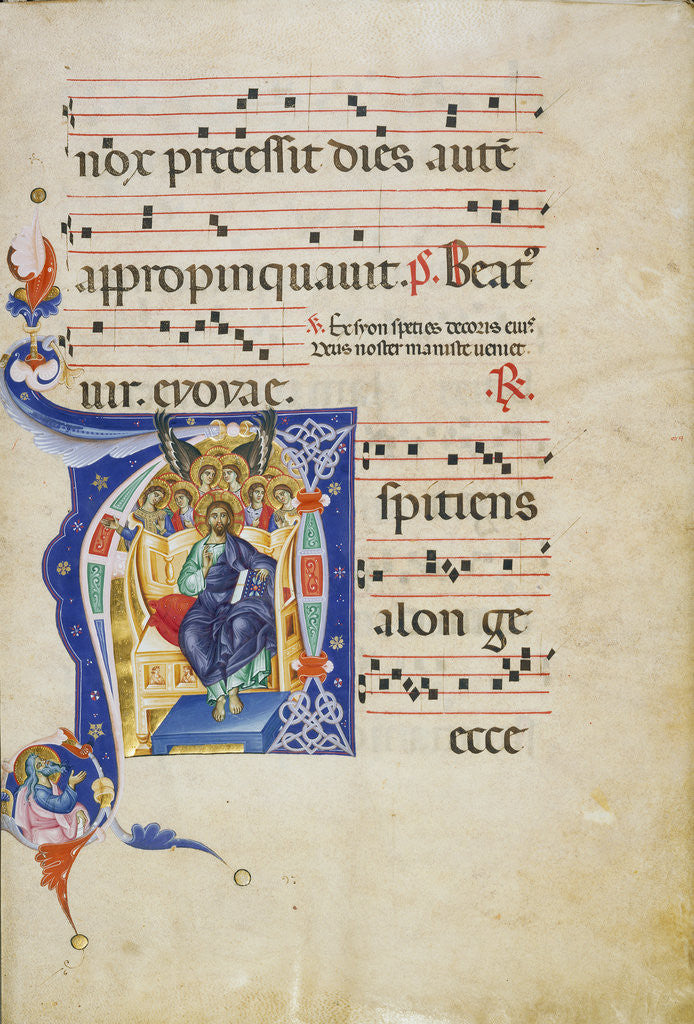 nox precessit dies autē
appropinquavit. P̲s. Beatꝰ
℣. Ex syon speties decoris eiuſ.
Deus noster maniste veniet.
uir. evovae.
.℟.
Aspitiens
alonge
ecce